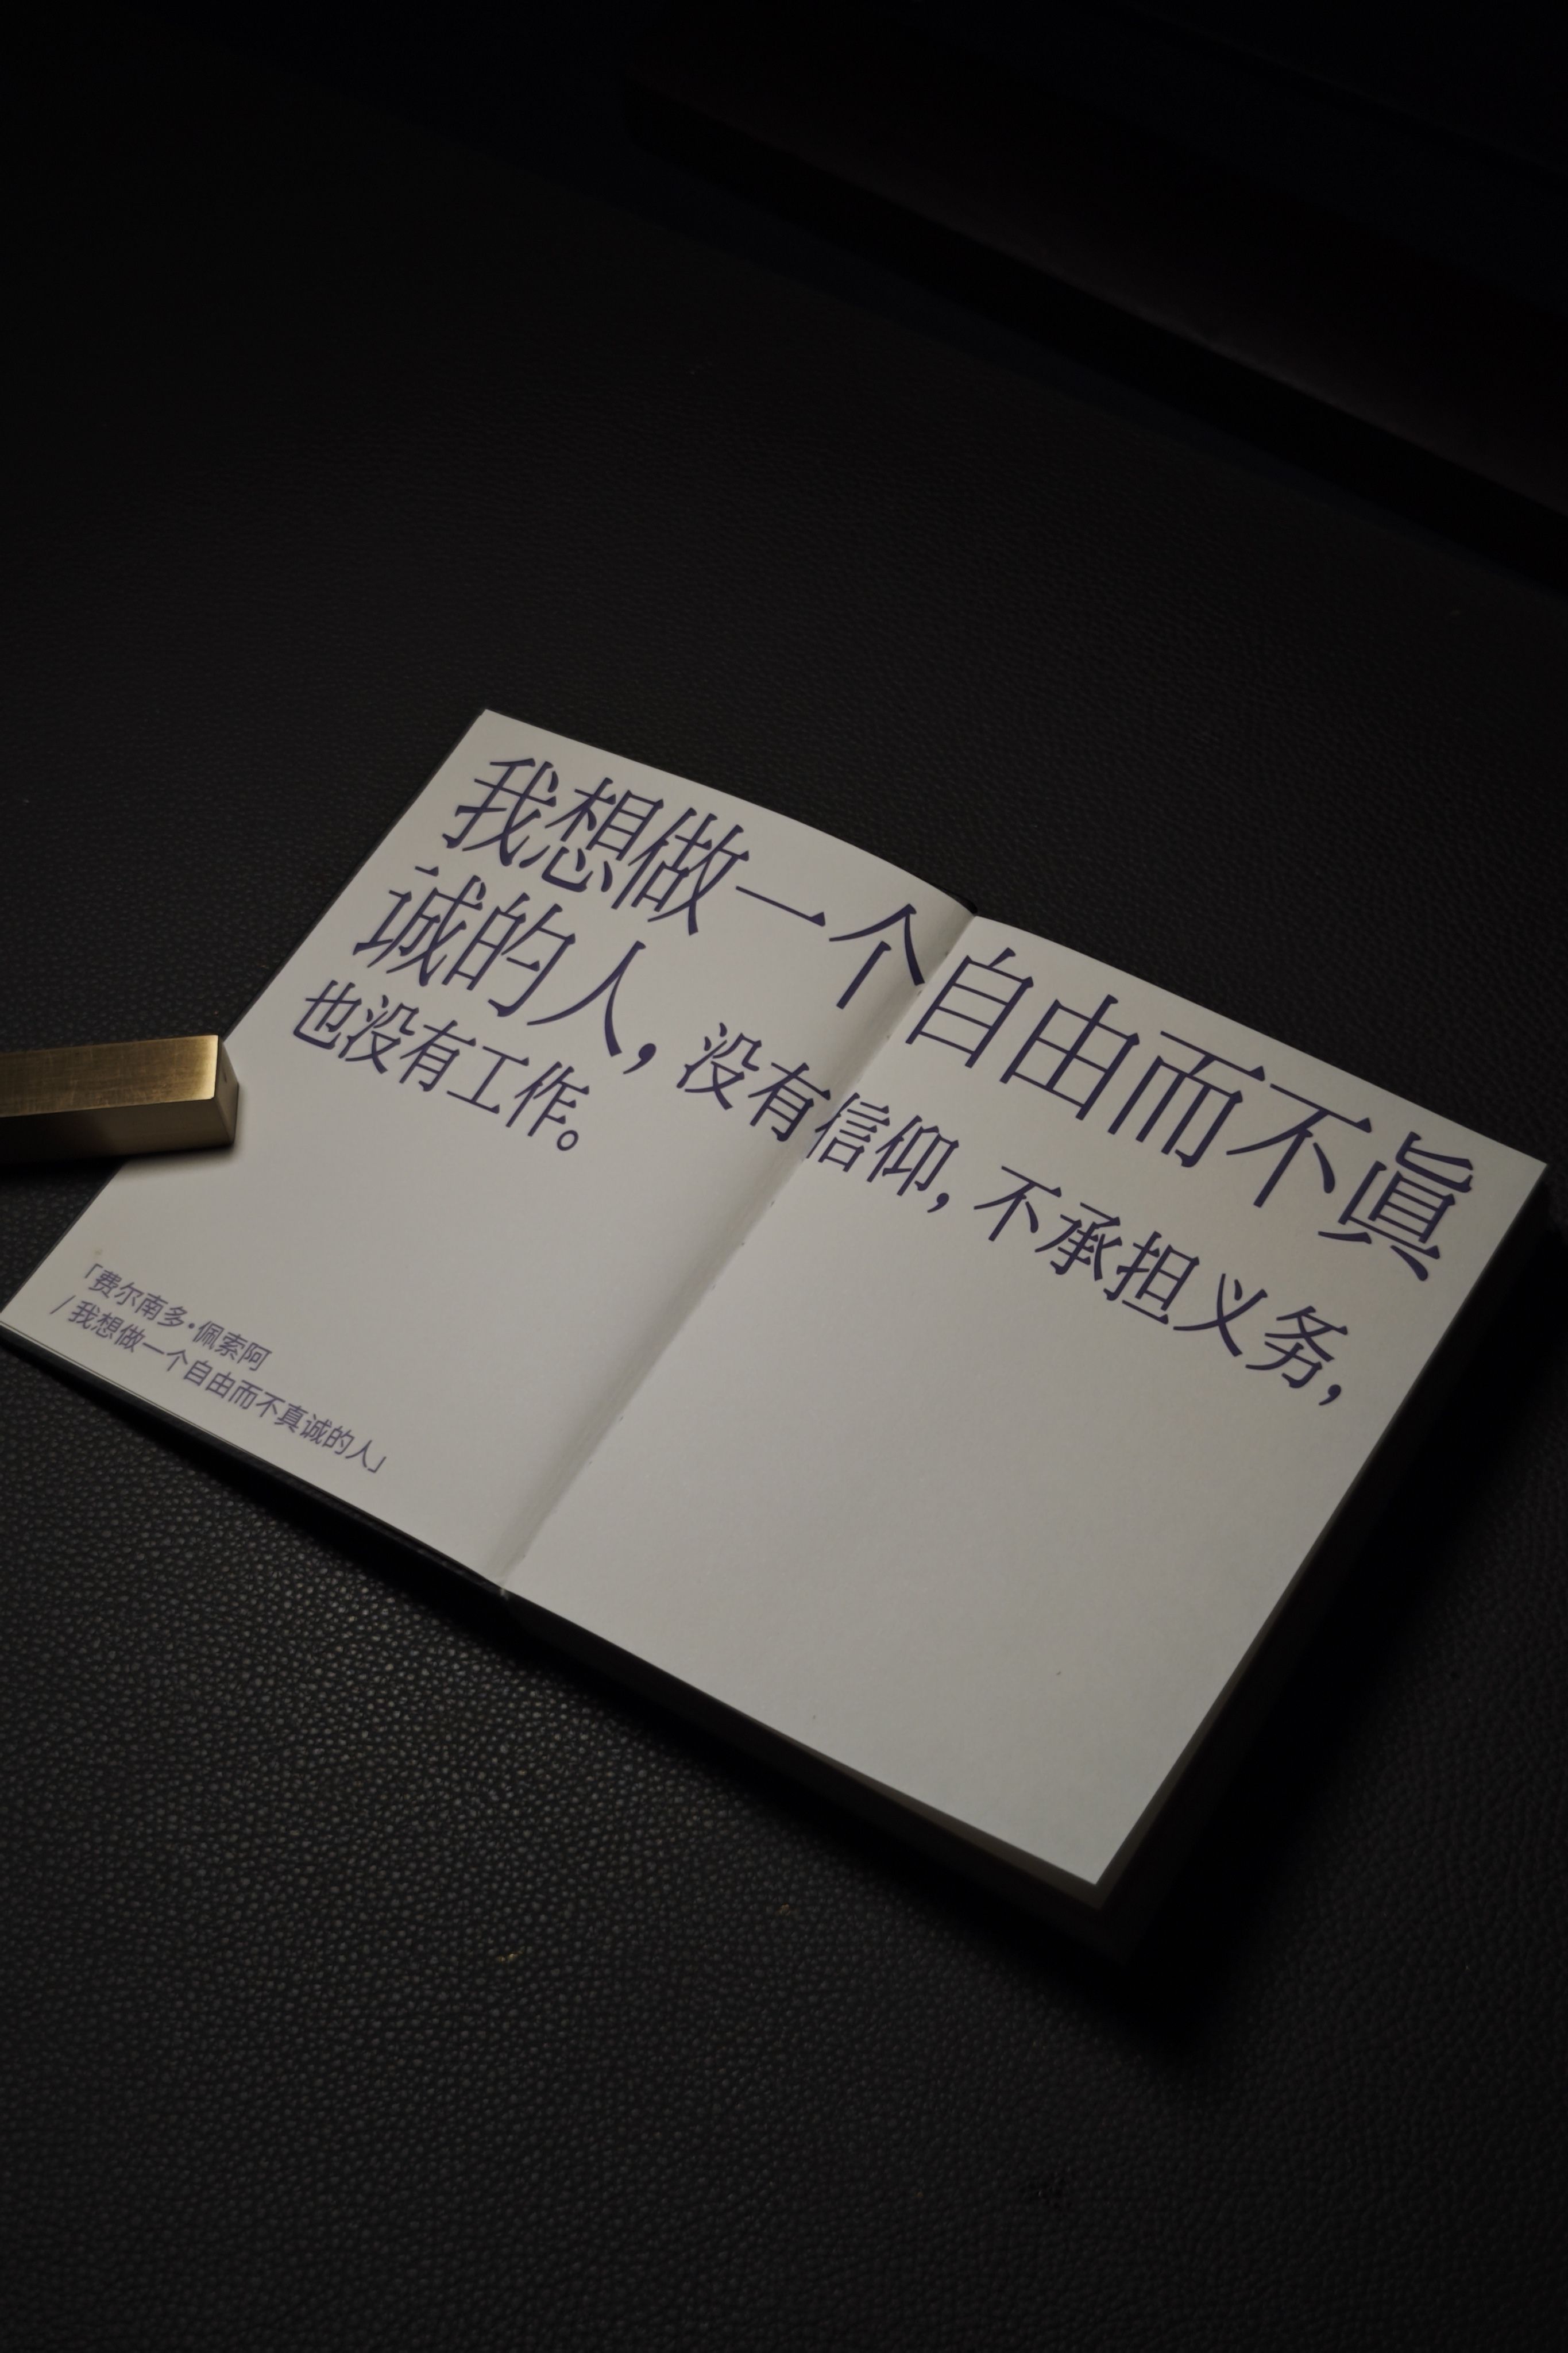 我想做一个自由而不真
诚的人，没有信仰，不承担义务，
也没有工作。
「费尔南多·佩索阿
/我想做一个自由而不真诚的人」